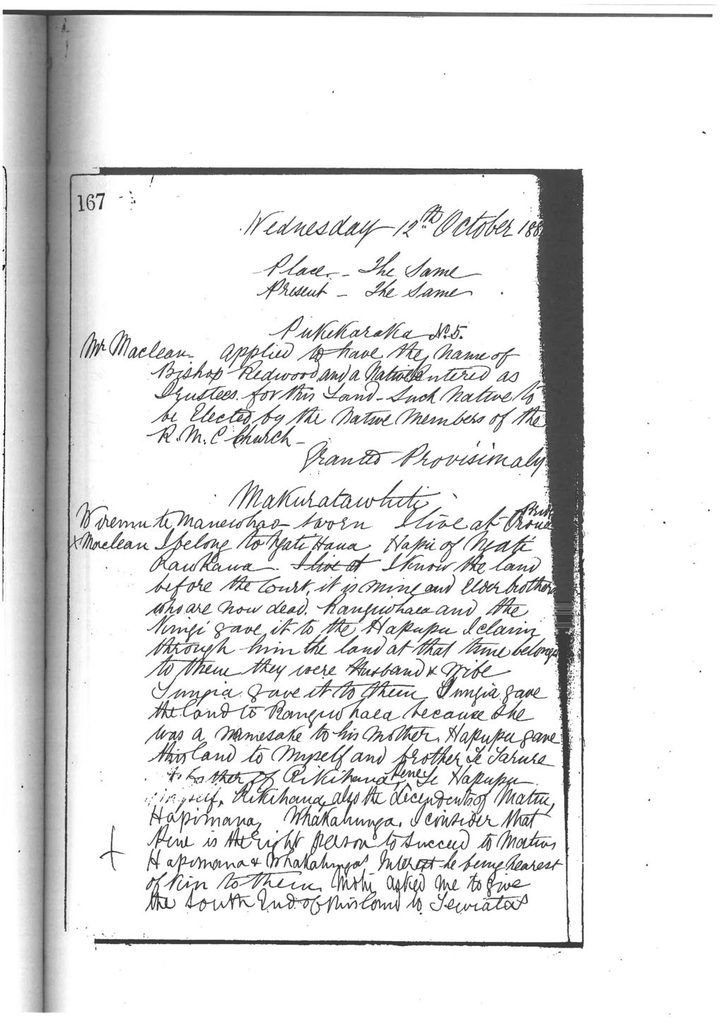 167
Wednesday 12th October 188
Place - The Same
Present - The Same
Pukekaraka No. 5.
Mr Maclean applied to have the name of
Bishop Redwood and a Native Entered as
Trustees for this Land - Such Native to
be Elected by the Native Members of the
R. M. C Church -
Granted Provisionaly
Makuratawhiti
Wiremu te Manewhao sworn I live at
x Maclean I belong to Hapu of Ngati
Raukawa. I live at I know the land
before the Court, it is mine and Elder brother
who are now dead. Rangiwhaea and the
gave it to the Hapupu I claim
through him the land at that time belonged
to them they were Husband & Wife
Tungia gave it to them Tungia gave
the land to Rangiwhaea because she
was a namesake to his mother. Hapupu gave
this land to myself and brother Te
of Rikihana Te Hapupu
myself, Rikihana, also the decendents of
Hapimana, Whakahunga. I consider that
Hine is the right person to succeed to
Hapimana & Whakahunga's Interest he being nearest
of Kin to them, Mohi asked me to give
the South End of this land to